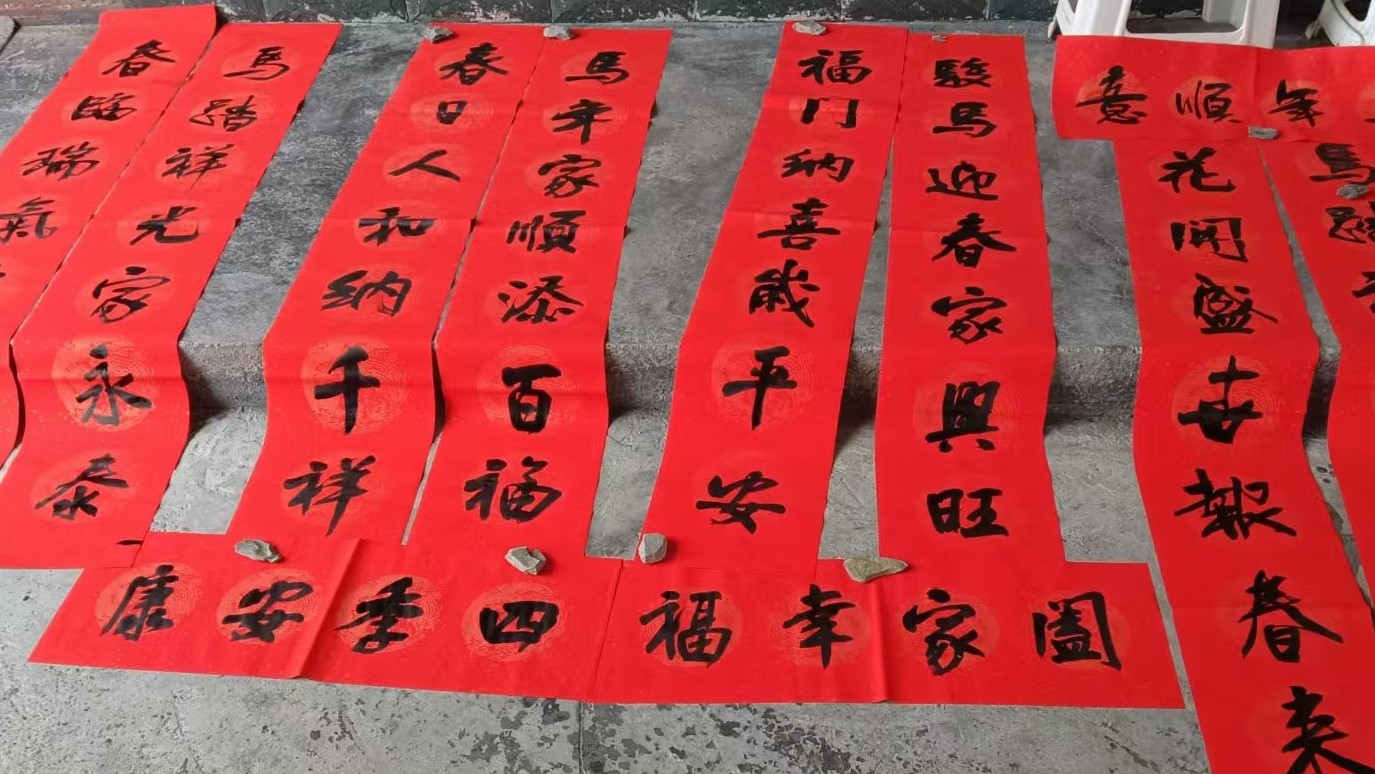 年順意
馬踏
花開盛世報春來
駿馬迎春家興旺
福門納喜歲平安
闔家幸福
馬年家順添百福
春日人和納千祥
四季安康
馬踏祥光家永泰
春臨瑞氣